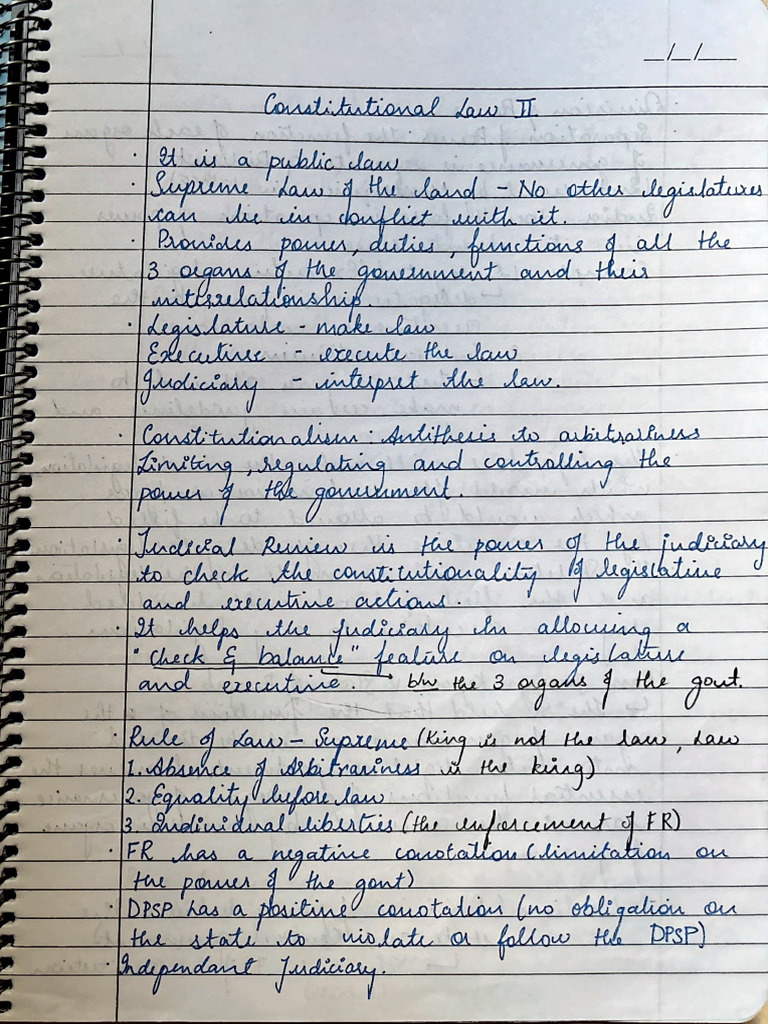 _/_/__
Constitutional Law II
· It is a public law
· Supreme Law of the land - No other legislatures
can lie in conflict with it.
· Provides power, duties, functions of all the
3 organs of the government and their
interrelationship.
· Legislature - make law
Executive - execute the law
Judiciary - interpret the law.
· Constitutionalism : Antithesis to arbitrariness
Limiting, regulating and controlling the
power of the government.
· Judicial Review is the power of the judiciary
to check the constitutionality of legislative
and executive actions.
· It helps the judiciary in allowing a
"check & balance" feature on legislature
and executive. → b/w the 3 organs of the govt.
· Rule of Law - Supreme (King is not the law, Law
1. Absence of Arbitrariness is the king)
2. Equality before law
3. Individual liberties (the enforcement of FR)
· FR has a negative conotation (limitation on
the power of the govt)
· DPSP has a positive conotation (no obligation on
the state to violate or follow the DPSP)
· Independant Judiciary.